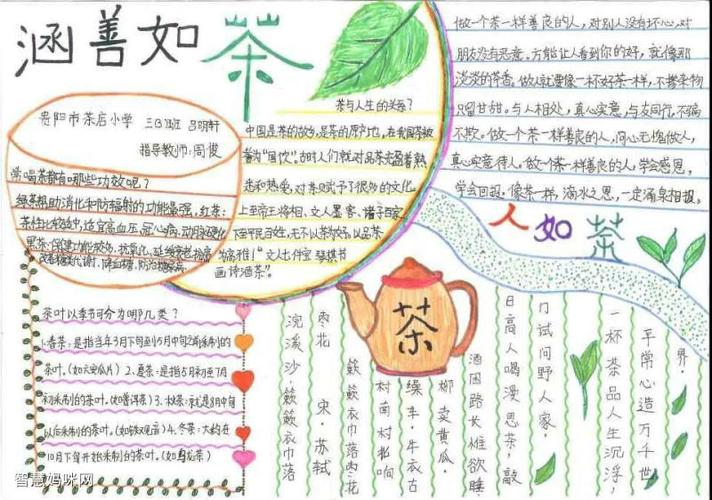 涵善如茶
贵阳市茶店小学 三(3)班 吕明轩
指导教师:周俊
常喝茶都有哪些功效呢?
绿茶帮助消化和防辐射的功能最强,红茶:
茶性比较适中,适宜高血压、冠心病、动脉硬化
茶与人生的关系?
中国是茶的故乡,是茶的原产地,在我国茶被
誉为“国饮”.古时人们就对品茶充盈着熟
上至帝王将相、文人墨客、诸子百家
下至平民百姓,无不以茶为好,以品茶
为高雅!“文人七件宝 琴棋书
画诗酒茶”。
做一个茶一样善良的人,对别人没有坏心,对
朋友没有恶意。方能让人看到你的好,就像那
淡淡的茶香。做人就要像一杯好茶一样,不掺杂物
只留甘甜。与人相处,真心实意,与友同行,不骗
不欺。做一个茶一样善良的人,问心无愧做人,
真心实意待人。做一个茶一样善良的人,学会感恩,
学会回报。像茶一样,滴水之恩,一定涌泉相报。
人如茶
茶叶以季节可分为哪几类?
1、春茶:是指当年3月下旬到5月中旬之前采制的
茶叶。(如六安瓜片)2、夏茶:是指5月初至7月
初采制的茶叶。(如普洱茶)3、秋茶:就是8月中旬
以后采制的茶叶。 4、冬茶:大约在
10月下旬开始采制的茶叶。(如乌龙茶)
茶
浣溪沙·簌簌衣巾落
枣花 宋·苏轼
簌簌衣巾落枣花
村南村北响
缲车,牛衣古
柳卖黄瓜.
酒困路长惟欲睡
日高人喝漫思茶,敲
门试问野人家.
一杯茶品人生沉浮,
平常心造万千世
界
智慧妈咪网